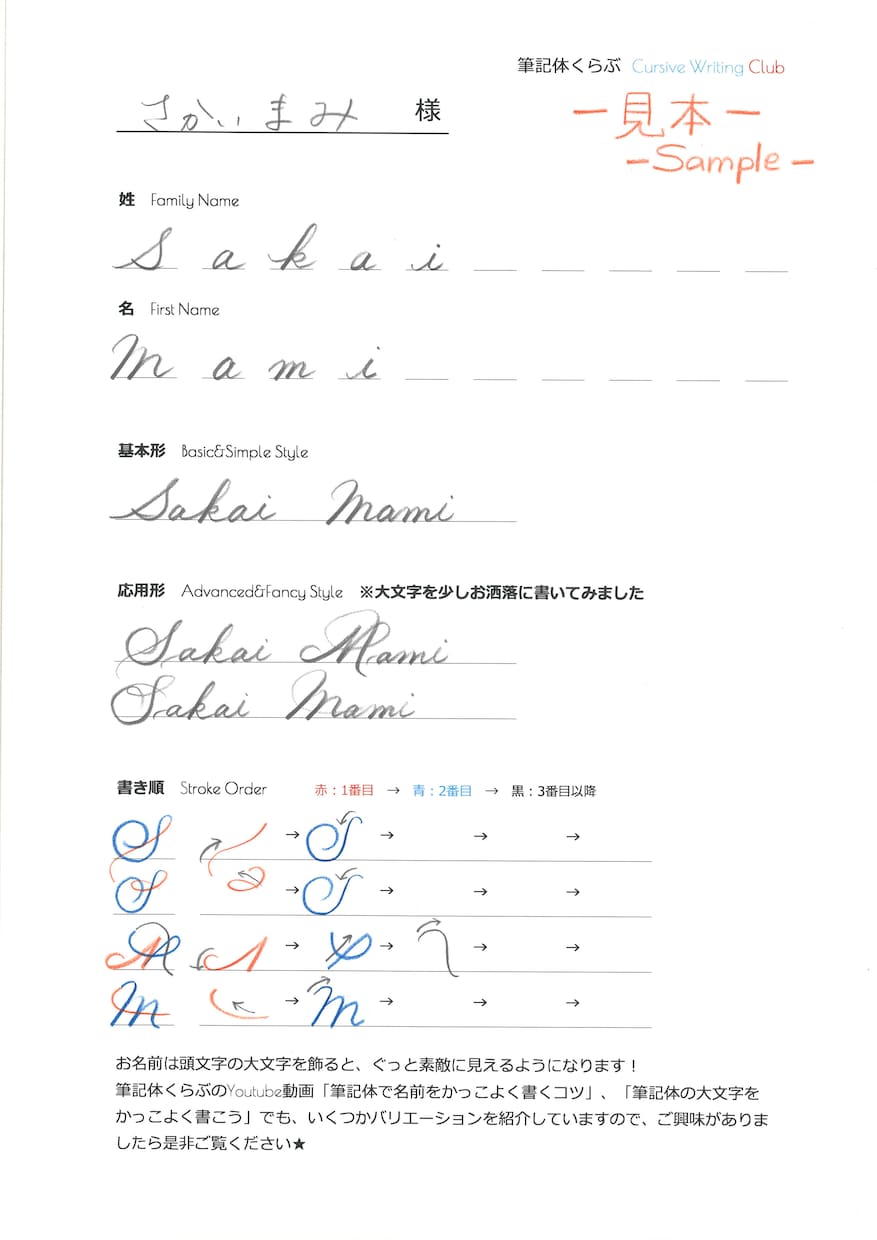 筆記体くらぶ Cursive Writing Club
さかいまみ 様
ー見本ー
-Sample-
姓 Family Name
S a k a i
名 First Name
M a m i
基本形 Basic&Simple Style
Sakai Mami
応用形 Advanced&Fancy Style ※大文字を少しお洒落に書いてみました
Sakai Mami
Sakai Mami
書き順 Stroke Order 赤：1番目 → 青：2番目 → 黒：3番目以降
S → S → → →
S → S → → →
M → → → →
M → M → → →
お名前は頭文字の大文字を飾ると、ぐっと素敵に見えるようになります！
筆記体くらぶのYoutube動画「筆記体で名前をかっこよく書くコツ」、「筆記体の大文字を
かっこよく書こう」でも、いくつかバリエーションを紹介していますので、ご興味がありま
したら是非ご覧ください★